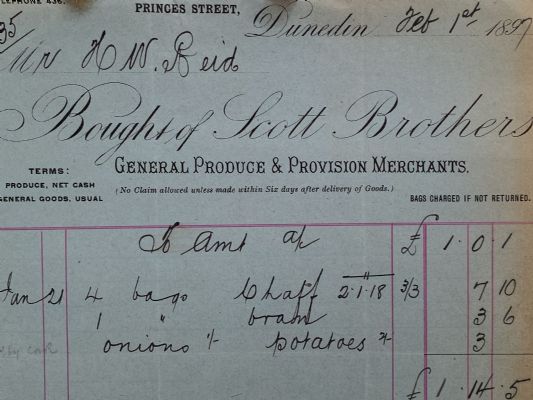 TELEPHONE 436.
PRINCES STREET,
Dunedin Feb 1st 1897
35/
Mr H W. Reid
Bought of Scott Brothers
GENERAL PRODUCE & PROVISION MERCHANTS.
TERMS:
PRODUCE, NET CASH
GENERAL GOODS, USUAL
(No Claim allowed unless made within Six days after delivery of Goods.)
BAGS CHARGED IF NOT RETURNED.
To Amt a/c £ 1 . 0 . 1
Jan 21 4 bags Chaff 2.1.18 3/3 7 10
1 " bran 3 6
onions 1/- potatoes 2/- 3
£ 1 . 14 . 5